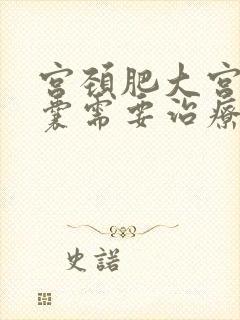 宫颈肥大宫
囊需要治療
史諾